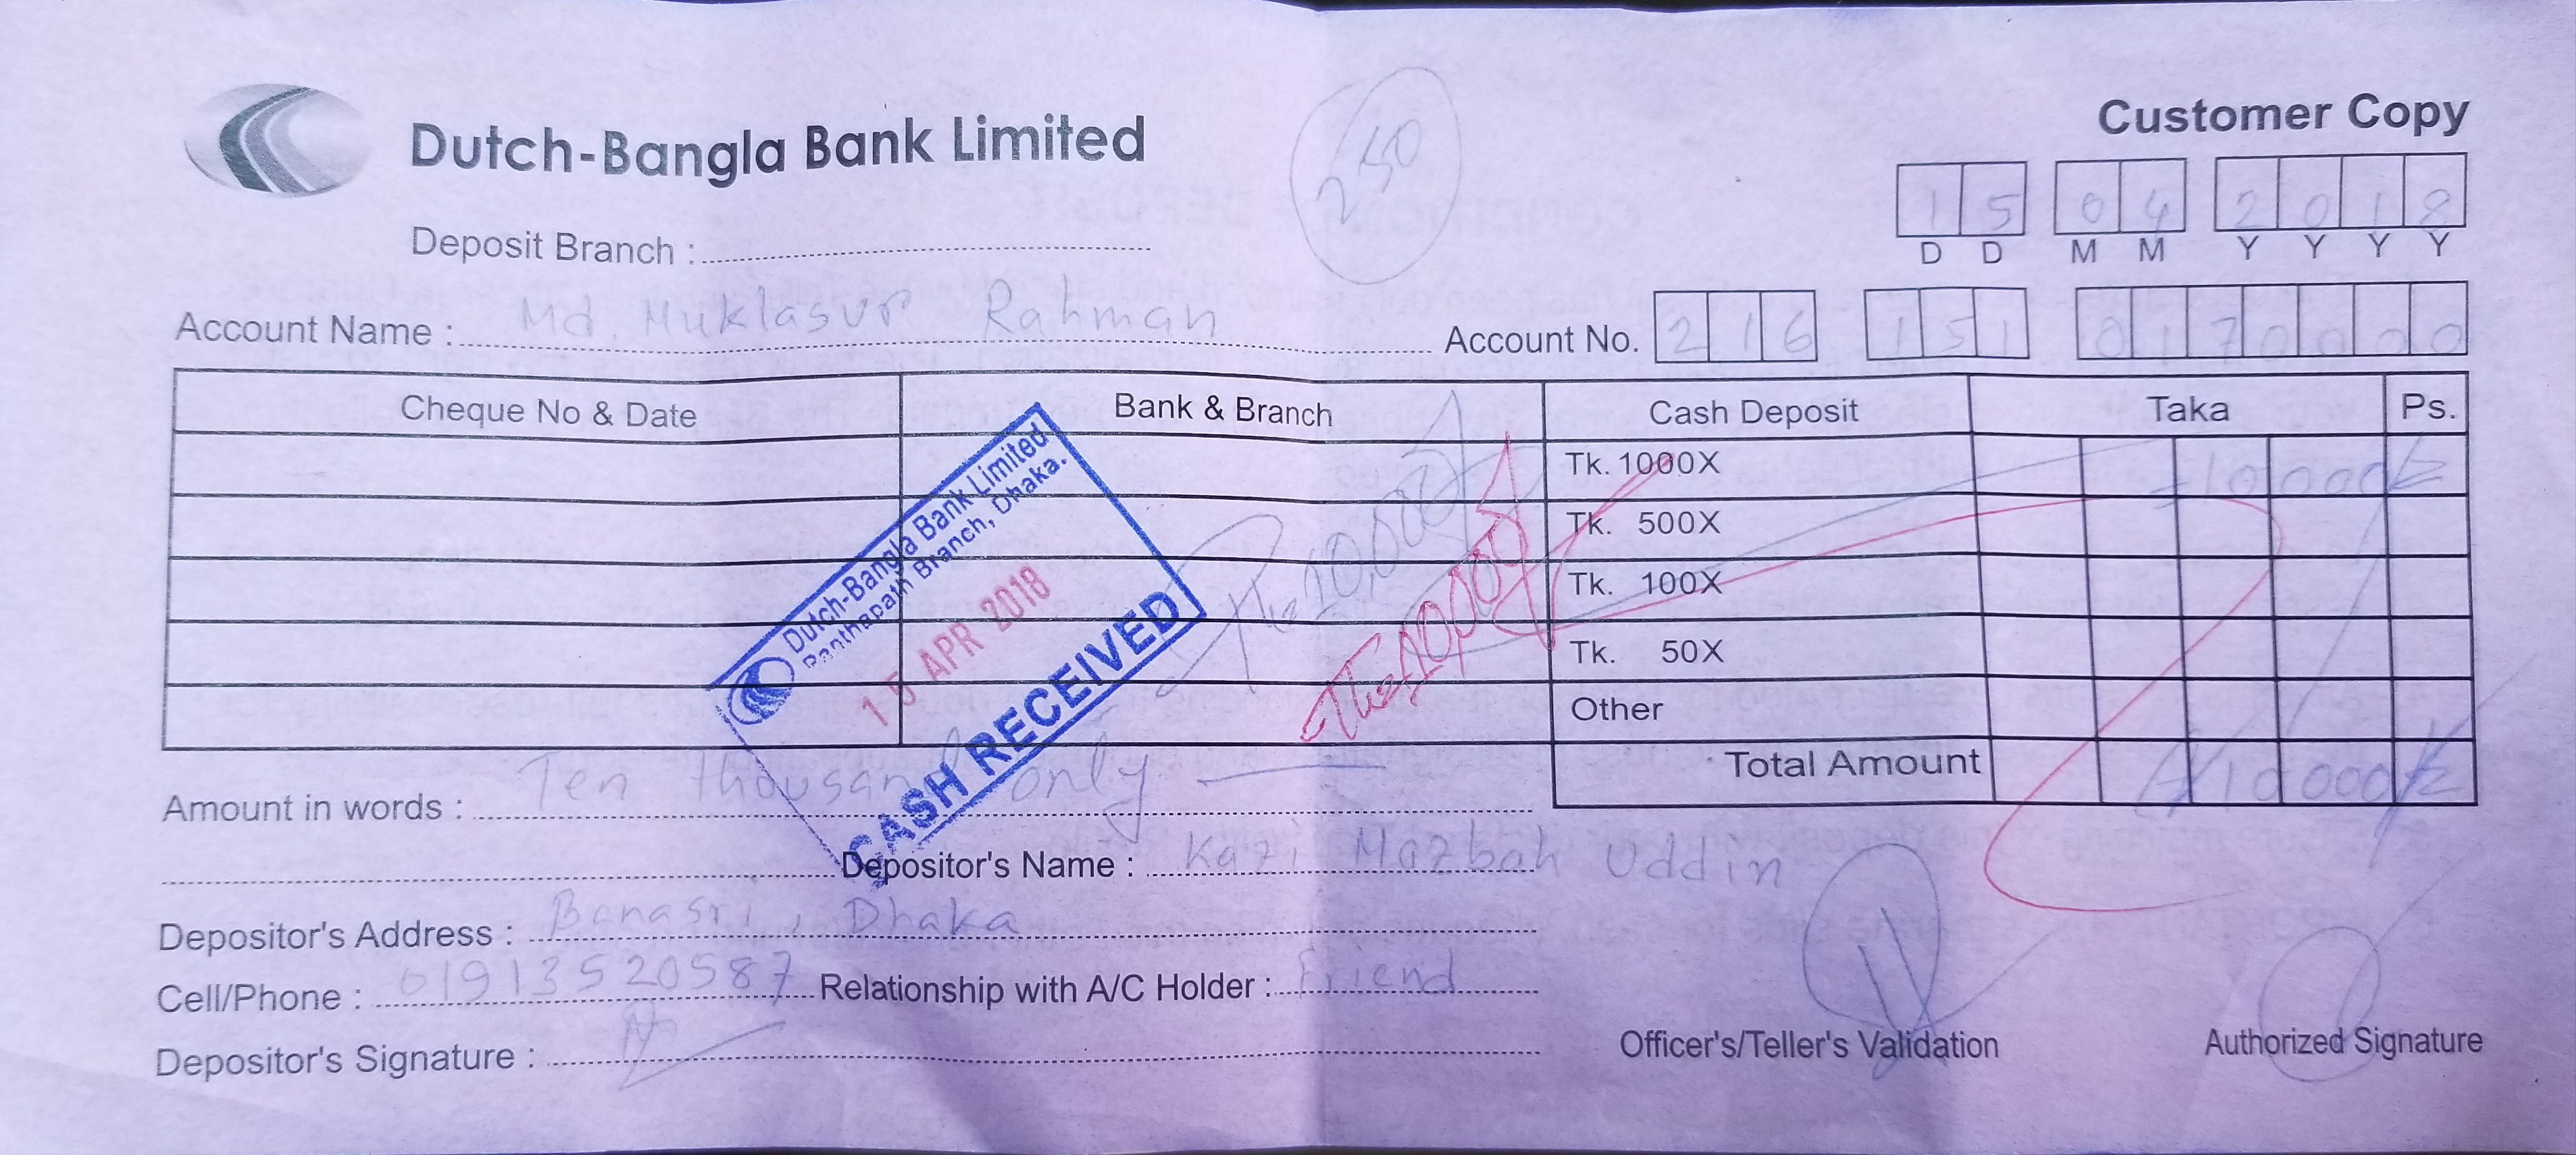 Dutch-Bangla Bank Limited
Customer Copy
250
15 04 2018
D D M M Y Y Y Y
Deposit Branch :
Account Name : Md. Muklasur Rahman
Account No. 216 151 0170000
Cheque No & Date Bank & Branch Cash Deposit Taka Ps.
Tk. 1000X 10000
Tk. 500X
Tk. 100X
Tk. 50X
Other
Total Amount 10000
Dutch-Bangla Bank Limited
Panthapath Branch, Dhaka.
15 APR 2018
CASH RECEIVED
10,000
10,000
Amount in words : Ten thousand only
Depositor's Name : Kazi Mazbah Uddin
Depositor's Address : Banasri, Dhaka
Cell/Phone : 01913520587 Relationship with A/C Holder : Friend
Depositor's Signature :
Officer's/Teller's Validation
Authorized Signature